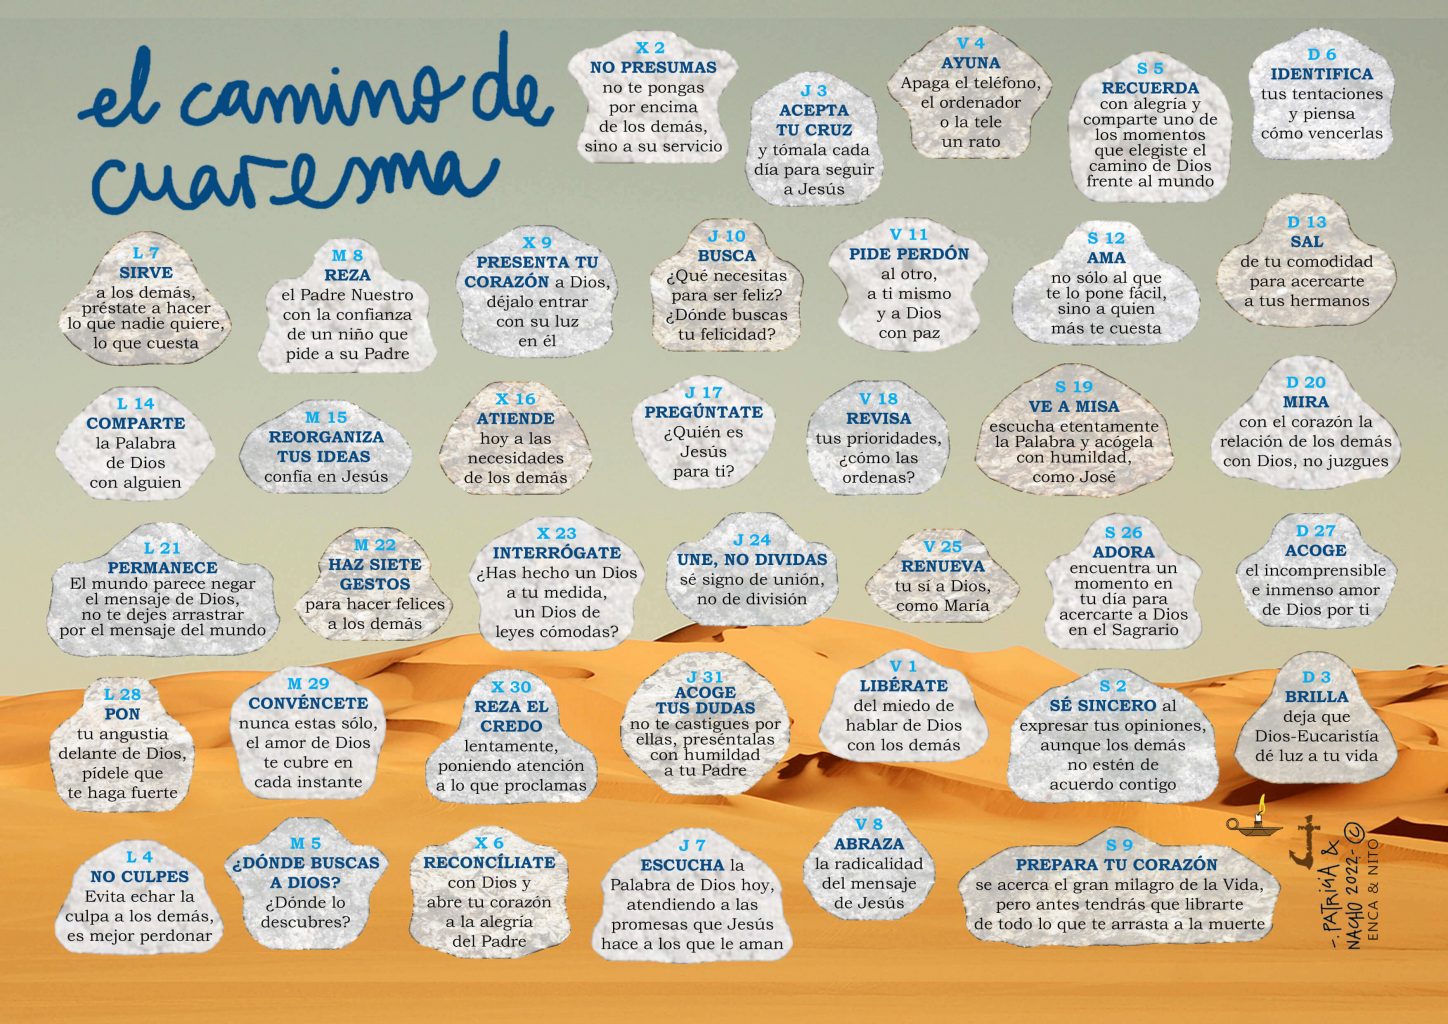 el camino de
cuaresma
X 2
NO PRESUMAS
no te pongas
por encima
de los demás,
sino a su servicio
J 3
ACEPTA
TU CRUZ
y tómala cada
día para seguir
a Jesús
V 4
AYUNA
Apaga el teléfono,
el ordenador
o la tele
un rato
S 5
RECUERDA
con alegría y
comparte uno de
los momentos
que elegiste el
camino de Dios
frente al mundo
D 6
IDENTIFICA
tus tentaciones
y piensa
cómo vencerlas
L 7
SIRVE
a los demás,
préstate a hacer
lo que nadie quiere,
lo que cuesta
M 8
REZA
el Padre Nuestro
con la confianza
de un niño que
pide a su Padre
X 9
PRESENTA TU
CORAZÓN a Dios,
déjalo entrar
con su luz
en él
J 10
BUSCA
¿Qué necesitas
para ser feliz?
¿Dónde buscas
tu felicidad?
V 11
PIDE PERDÓN
al otro,
a ti mismo
y a Dios
con paz
S 12
AMA
no sólo al que
te lo pone fácil,
sino a quien
más te cuesta
D 13
SAL
de tu comodidad
para acercarte
a tus hermanos
L 14
COMPARTE
la Palabra
de Dios
con alguien
M 15
REORGANIZA
TUS IDEAS
confía en Jesús
X 16
ATIENDE
hoy a las
necesidades
de los demás
J 17
PREGÚNTATE
¿Quién es
Jesús
para ti?
V 18
REVISA
tus prioridades,
¿cómo las
ordenas?
S 19
VE A MISA
escucha etentamente
la Palabra y acógela
con humildad,
como José
D 20
MIRA
con el corazón la
relación de los demás
con Dios, no juzgues
L 21
PERMANECE
El mundo parece negar
el mensaje de Dios,
no te dejes arrastrar
por el mensaje del mundo
M 22
HAZ SIETE
GESTOS
para hacer felices
a los demás
X 23
INTERRÓGATE
¿Has hecho un Dios
a tu medida,
un Dios de
leyes cómodas?
J 24
UNE, NO DIVIDAS
sé signo de unión,
no de división
V 25
RENUEVA
tu sí a Dios,
como María
S 26
ADORA
encuentra un
momento en
tu día para
acercarte a Dios
en el Sagrario
D 27
ACOGE
el incomprensible
e inmenso amor
de Dios por ti
L 28
PON
tu angustia
delante de Dios,
pídele que
te haga fuerte
M 29
CONVÉNCETE
nunca estas sólo,
el amor de Dios
te cubre en
cada instante
X 30
REZA EL
CREDO
lentamente,
poniendo atención
a lo que proclamas
J 31
ACOGE
TUS DUDAS
no te castigues por
ellas, preséntalas
con humildad
a tu Padre
V 1
LIBÉRATE
del miedo de
hablar de Dios
con los demás
S 2
SÉ SINCERO al
expresar tus opiniones,
aunque los demás
no estén de
acuerdo contigo
D 3
BRILLA
deja que
Dios-Eucaristía
dé luz a tu vida
L 4
NO CULPES
Evita echar la
culpa a los demás,
es mejor perdonar
M 5
¿DÓNDE BUSCAS
A DIOS?
¿Dónde lo
descubres?
X 6
RECONCÍLIATE
con Dios y
abre tu corazón
a la alegría
del Padre
J 7
ESCUCHA la
Palabra de Dios hoy,
atendiendo a las
promesas que Jesús
hace a los que le aman
V 8
ABRAZA
la radicalidad
del mensaje
de Jesús
S 9
PREPARA TU CORAZÓN
se acerca el gran milagro de la Vida,
pero antes tendrás que librarte
de todo lo que te arrasta a la muerte
PATRICIA &
NACHO 2022 ©
ENCA & NITO